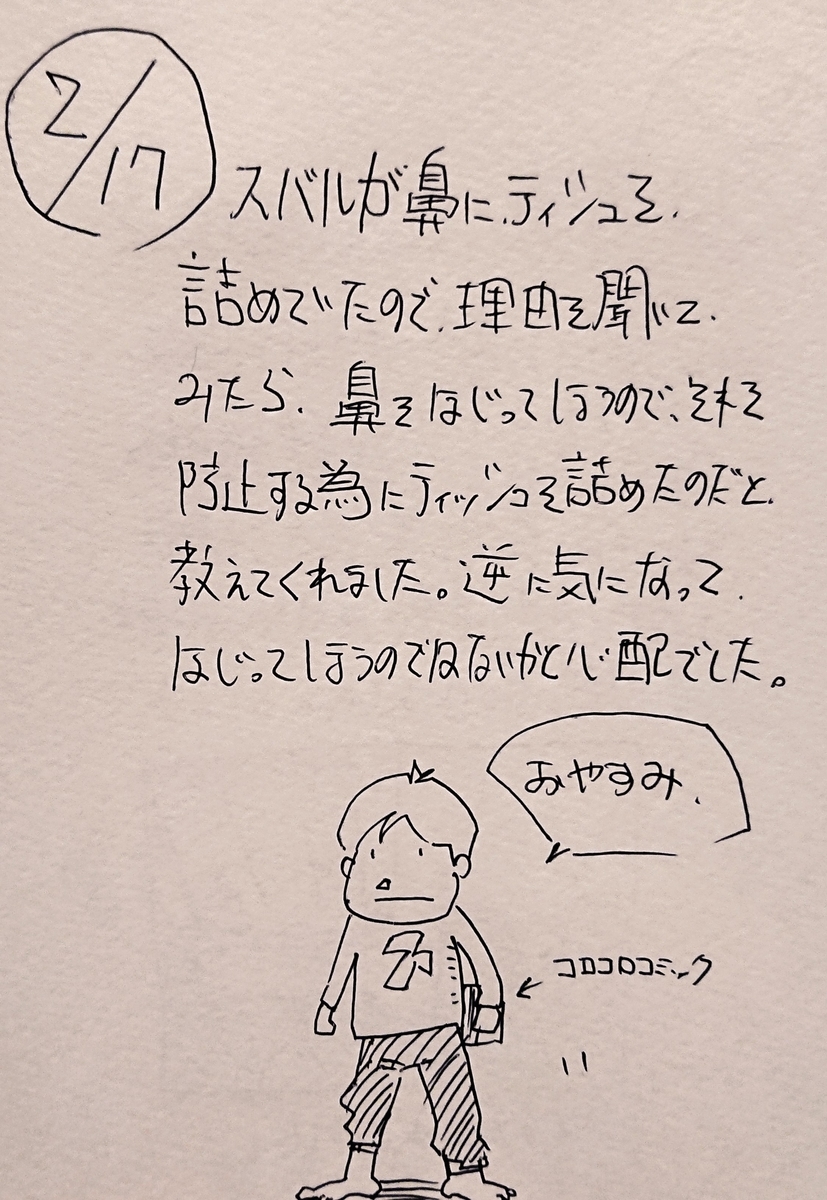 2/17
スバルが鼻に、ティシュを、
詰めていたので、理由を聞いて、
みたら、鼻をほじってしまうので、それを
防止する為にティッシュを詰めたのだと、
教えてくれました。逆に気になって、
ほじってしまうのではないかと心配でした。
おやすみ、
コロコロコミック